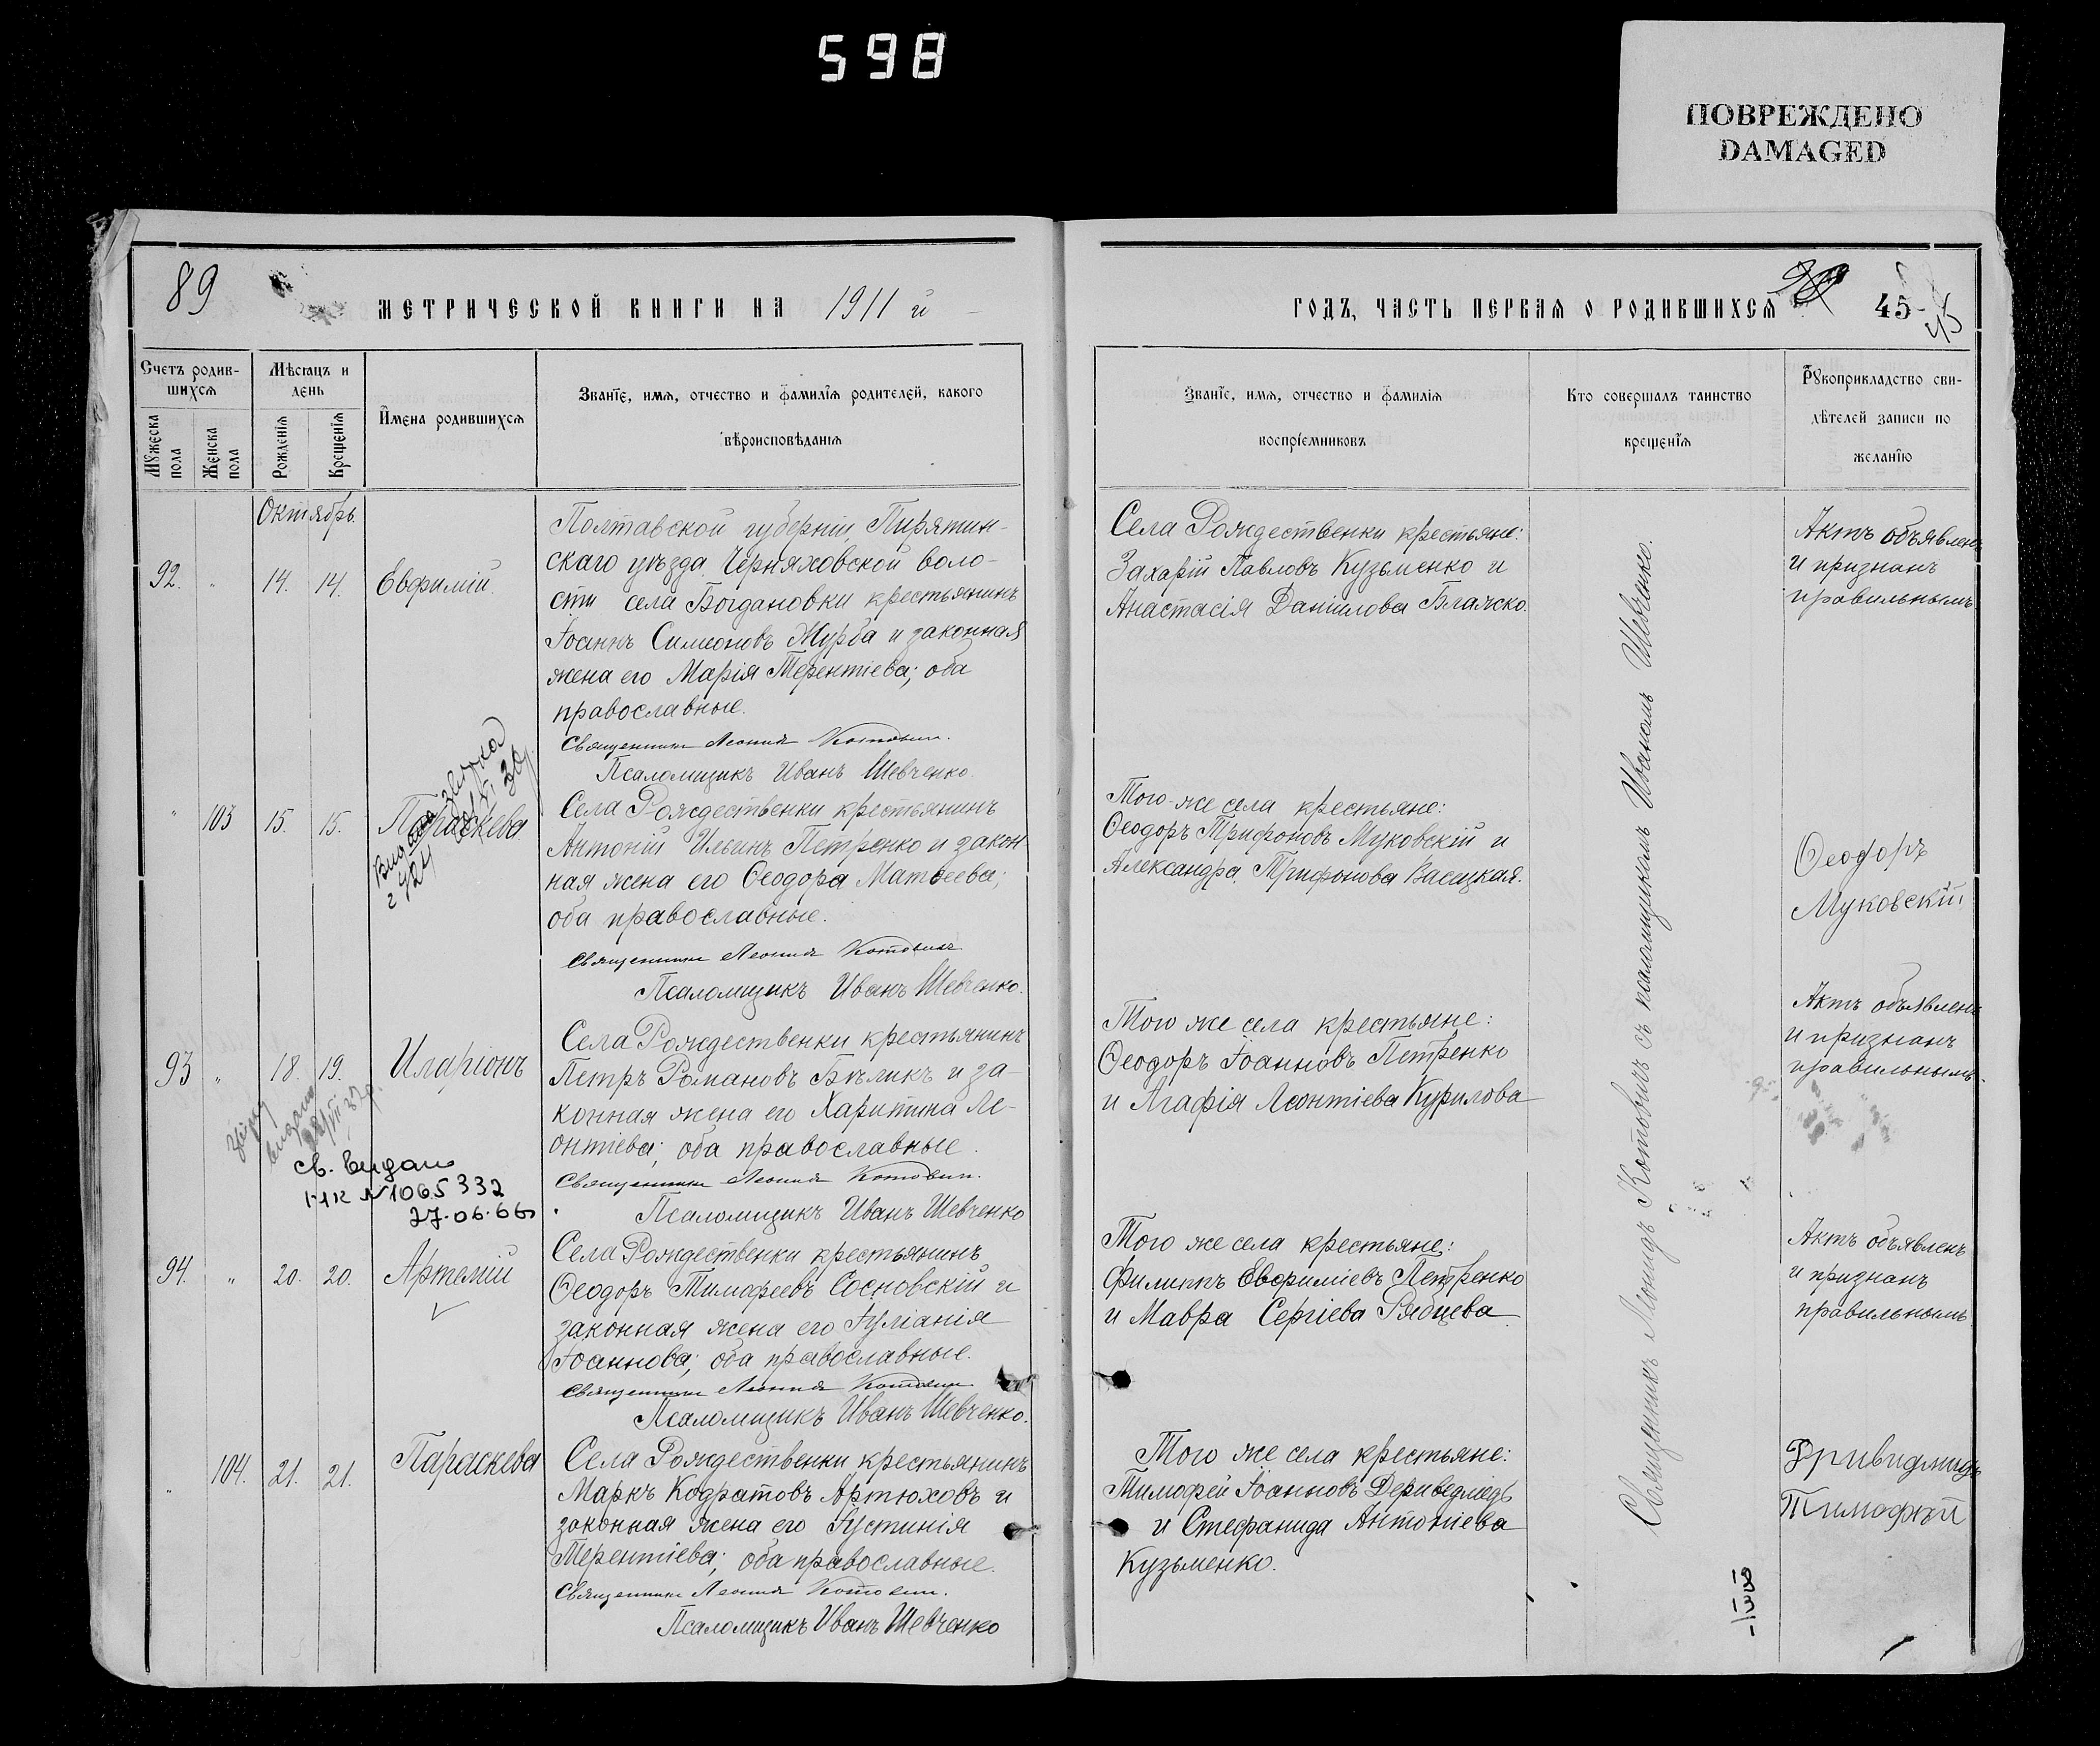 598
ПОВРЕЖДЕНО
DAMAGED
89
МЕТРИЧЕСКОЙ КНИГИ НА 1911 й
ГОДЪ, ЧАСТЬ ПЕРВАЯ О РОДИВШИХСЯ
45
45
Счетъ родив-
шихся
Мужеска пола
Женска пола
Мѣсяцъ и
день
Рожденія
Крещенія
Имена родившихся
Званіе, имя, отчество и фамилія родителей, какого
вѣроисповѣданія
Званіе, имя, отчество и фамилія
воспріемниковъ
Кто совершалъ таинство
крещенія
Рукоприкладство сви-
дѣтелей записи по
желанію
Октябрь.
92. " 14. 14. Евфимій.
Полтавской губерніи, Пирятин-
скаго уѣзда Черняховской воло-
сти села Богдановки крестьянинъ
Іоаннъ Симеоновъ Журба и законная
жена его Марія Терентіева; оба
православные.
Священникъ Леонидъ Котовичъ.
Псаломщикъ Иванъ Шевченко.
Села Рождественки крестьяне:
Захарій Павловъ Кузьменко и
Анастасія Даніилова Блажко.
Актъ объявленъ
и признанъ
правильнымъ.
" 103 15. 15. Параскева
Села Рождественки крестьянинъ
Антоній Ильинъ Петренко и закон-
ная жена его Ѳеодора Матѳеева;
оба православные.
Священникъ Леонидъ Котовичъ
Псаломщикъ Иванъ Шевченко.
Того-же села крестьяне:
Ѳеодоръ Трифоновъ Муковскій и
Александра Трифонова Васицкая.
Ѳеодоръ
Муковскій
93 " 18. 19. Иларіонъ
св. видано
І-ЧК № 1065332
27.06.66
Села Рождественки крестьянинъ
Петръ Романовъ Бѣликъ и за-
конная жена его Харитина Ле-
онтіева; оба православные.
Священникъ Леонидъ Котовичъ.
Псаломщикъ Иванъ Шевченко
Того же села крестьяне:
Ѳеодоръ Іоанновъ Петренко
и Агафія Леонтіева Курилова
Актъ объявленъ
и признанъ
правильнымъ.
94. " 20. 20. Артемій
Села Рождественки крестьянинъ
Ѳеодоръ Тимофеевъ Сосновскій и
законная жена его Іуліанія
Іоаннова; оба православные.
Священникъ Леонидъ Котовичъ
Псаломщикъ Иванъ Шевченко.
Того же села крестьяне:
Филиппъ Евфиміевъ Петренко
и Мавра Сергіева Рябцева
Актъ объявленъ
и признанъ
правильнымъ
" 104. 21. 21. Параскева
Села Рождественки крестьянинъ
Маркъ Кодратовъ Артюховъ и
законная жена его Іустинія
Терентіева; оба православные.
Священникъ Леонидъ Котовичъ.
Псаломщикъ Иванъ Шевченко
Того же села крестьяне:
Тимофей Іоанновъ Дериведмѣдь
и Стефанида Антоніева
Кузьменко.
Тимофѣй
Священникъ Леонидъ Котовичъ съ псаломщикомъ Иваномъ Шевченко.